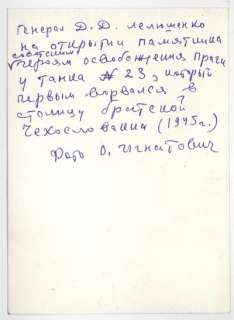 Генерал Д. Д. Лелюшенко
на открытии памятника
советским
героям освобождения Праги
у танка № 23, который
первым ворвался в
столицу братской
Чехословакии (1945г.)
Фото О. Игнатович